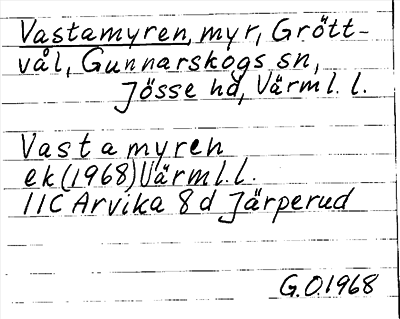 Vastamyren, myr, Grött-
vål, Gunnarskogs sn,
Jösse hd, Värml. l.
Vastamyren
ek (1968) Värml. l.
11C Arvika 8d Järperud
G.O.1968